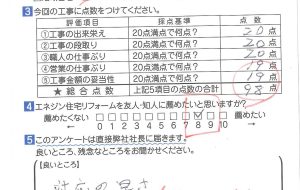 3 今回の工事に点数をつけてください。
評価項目 採点基準 点数
①工事の出来栄え 20点満点で何点? 20点
②工事の段取り 20点満点で何点? 20点
③職人の仕事ぶり 20点満点で何点? 20点
④営業の仕事ぶり 20点満点で何点? 19点
⑤工事金額の妥当性 20点満点で何点? 19点
★総合点数 上記5項目の点数の合計 98点
4 エネジン住宅リフォームを友人・知人に薦めたいと思いますか?
薦めたくない 薦めたい
0 1 2 3 4 5 6 7 8 9 10
5 このアンケートは直接弊社社長に届きます。
良いところ、残念なところをお聞かせください。
【良いところ】